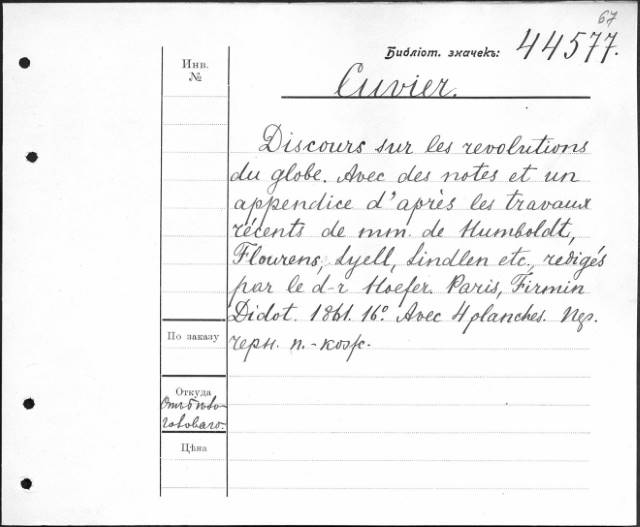 67
Библіот. значекъ: 44577.
Инв.
№
Cuvier.
Discours sur les revolutions
du globe. Avec des notes et un
appendice d'après les travaux
récents de mm. de Humboldt,
Flourens, Lyell, Lindlen etc, redigés
par le d-r Hoefer. Paris, Firmin
Didot. 1861. 16º. Avec 4 planches. Пер.
черн. п.-кож.
По заказу
Откуда
Цѣна